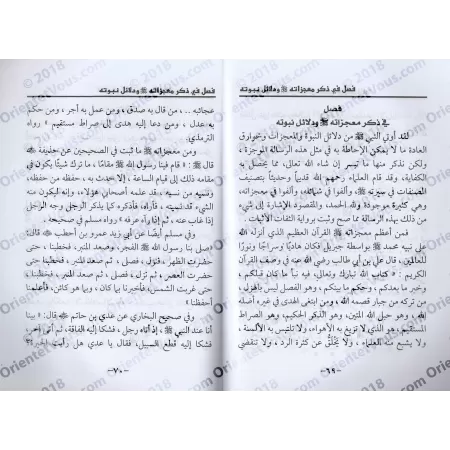 فصل في ذكر معجزاته ﷺ ودلائل نبوته
فصل
في ذكر معجزاته ﷺ ودلائل نبوته
لقد أوتي النبي ﷺ من دلائل النبوة والمعجزات وخوارق
العادة ما لا يمكن الإحاطة به في مثل هذه الرسالة الموجزة ،
ولكن نذكر منها ما تيسر إن شاء الله تعالى، مما يحصل به
الكفاية، وقد قام العلماء رحمهم الله قديماً وحديثاً بتصنيف
المصنفات في سيرته ﷺ، وألفوا في شمائله، وألفوا في معجزاته،
وهي كثيرة موجودة ولله الحمد، والمقصود الإشارة إلى شيء
من ذلك بهذه الرسالة مما صح وثبت برواية الثقات الأثبات .
فمن أعظم معجزاته ﷺ القرآن العظيم الذي أنزله الله
على نبيه محمد ﷺ بواسطة جبريل فكان هاديًا وسراجًا ونورًا
للعالمين، قال علي بن أبي طالب رضي الله عنه في وصف القرآن
الكريم : « كتاب الله تبارك وتعالى، فيه نبأ ما قبلكم ،
وخبر ما بعدكم ، وحكم ما بينكم ، وهو الفصل ليس بالهزل،
من تركه من جبار قصمه الله ، ومن ابتغى الهدى في غيره، أضله
الله، وهو حبل الله المتين، وهو الذكر الحكيم، وهو الصراط
المستقيم، هو الذي لا تزيغ به الأهواء، ولا تلتبس به الألسنة ،
ولا يشبع منه العلماء ، ولا يَخْلَقُ عن كثرة الرد ، ولا تنقضي
-٦٩-
فصل في ذكر معجزاته ﷺ ودلائل نبوته
عجائبه ... من قال به صدق ، ومن عمل به أجر ، ومن حكم
به عدل ، ومن دعا إليه هدى إلى صراط مستقيم » رواه
الترمذي.
ومن معجزاته ﷺ ما ثبت في الصحيحين عن حذيفة
قال : « قام فينا رسول الله ﷺ مقامًا ، ما ترك شيئًا يكون في
مقامه ذلك إلى قيام الساعة ، إلا حدث به ، حفظه من حفظه،
ونسيه من نسيه، قد علمه أصحابي هؤلاء، وإنه ليكون منه
الشيء، قد نسيته، فأراه، فأذكره كما يذكر الرجل وجه الرجل
إذا غاب عنه ، ثم إذا رآه عرفه » رواه مسلم في صحيحه .
وفي مسلم أيضًا عن أبي زيد عمرو بن أخطب قال:
صلى بنا رسول الله ﷺ الفجر، وصعد المنبر، فخطبنا، حتى
حضرت الظهر ، فنزل ، فصلى ، ثم صعد المنبر ، فخطبنا، حتى
حضرت العصر ، ثم نزل ، فصلى ، ثم صعد المنبر ، فخطبنا،
حتى غربت الشمس، فأخبرنا بما كان ، وبما هو كائن، فأعلمنا
أحفظنا »
وفي صحيح البخاري عن عدي بن حاتم قال: « بينا
أنا عند النبي ﷺ، إذ أتاه رجل، فشكا إليه الفاقة، ثم أتى آخر،
فشكا إليه قطع السبيل، فقال: يا عدي هل رأيت الحيرة؟
-٧٠-